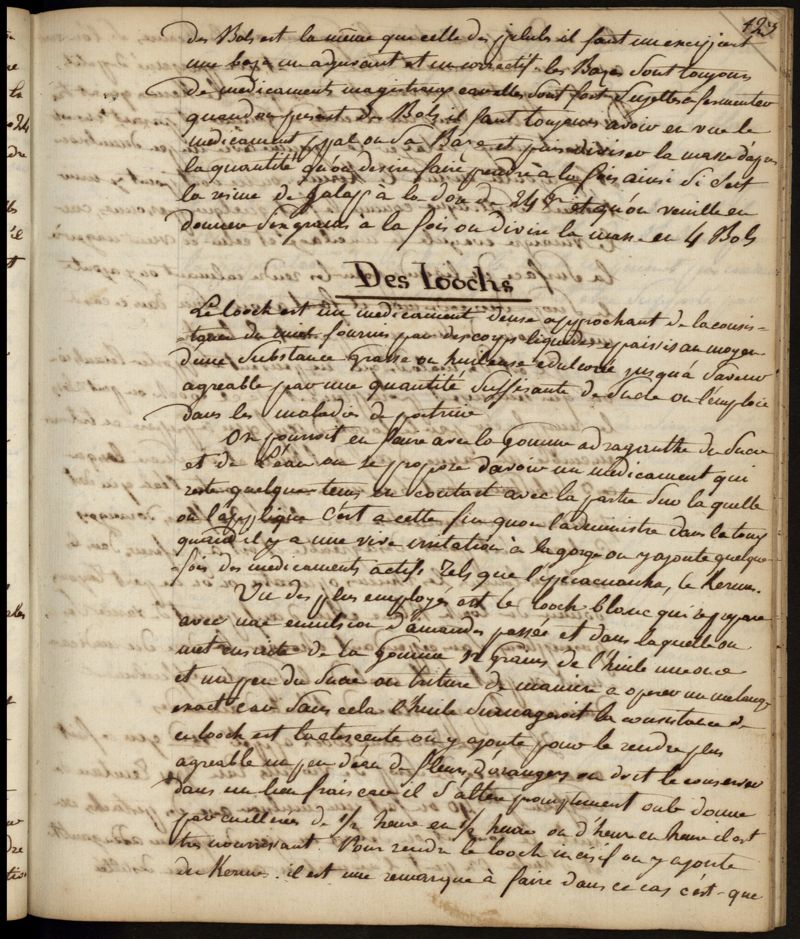 123
des Bols est la même que celle des pilules il faut un excipient
une base un adjuvant et un correctif. les Bazes sont toujours
de médicaments magistraux car elles sont fort sujettes a fermenter
quand on prescrit des Bols il faut toujours avoir en vue le
médicament ppal ou sa Base et puis diviser la masse d'après
la quantité qu'on desire faire prendre à la fois ainsi si c'est
la résine de jalap à la dose de 24 gr et qu'on veuille en
donner six grains à la fois on divise la masse en 4 Bols
Des Loochs
Le looch est un médicament dense approchant de la consis-
-tance du miel fournis par des corps liquides épaissis au moyen
d'une substance grasse ou huileuse edulcoré jusqu'à saveur
agreable par une quantité suffisante de sucre on l'emploie
dans les maladies de poitrine
On pourroit en faire avec la gomme adraganthe du sucre
et de l'eau on se propose d'avoir un médicament qui
reste quelque tems en contact avec la partie sur la quelle
on l'applique c'est a cette fin qu'on l'administre dans la toux
quand il y a une vive irritation à la gorge on y ajoute quelque
-fois des médicaments actifs. tels que l'ipécacuanha, le Kermes.
Un des plus employés est le looch blanc qui se prépare
avec une emulsion d'amandes passée et dans laquelle on
met ensuite de la gomme 12 grains de l'huile une once
et un peu du sucre on triture de manière a operer un melange
exact car sans cela l'huile surnageroit la consistance de
ce looch est lactescente on y ajoute pour le rendre plus
agreable un peu d'eau de fleurs d'orangers on doit le conserver
dans un lieu frais car il s'altère promptement on le donne
par cuillerées de 1/2 heure en 1/2 heure ou d'heure en heure il est
tres nourrissant. Pour rendre le looch incisif on y ajoute
du Kermes. il est une remarque à faire dans ce cas c'est-que